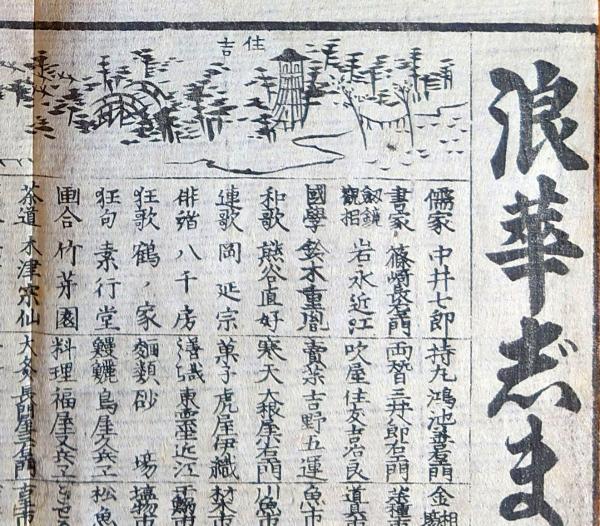 浪華志ま
住吉
儒家 中井七郎
持丸 鴻池善右門
金相
書家 篠崎長左門
両替 三井八郎右門
菜種
劔鏡観相 岩永近江
吹屋 住友吉治良
道具市
國學 鈴木重胤
賣茶 吉野五運
魚市
和歌 熊谷直好
寒天 大根屋小右門
川魚市
連歌 岡延宗
菓子 虎屋伊織
材木市
俳諧 八千房
東壷屋近江
狂歌 鶴ノ家
麺類 砂場
塩市
狂句 素行堂
鰻鱺 鳥屋久兵ヱ
松魚
画合 竹芽園
料理 福屋又兵ヱ
茶道 木津宗仙